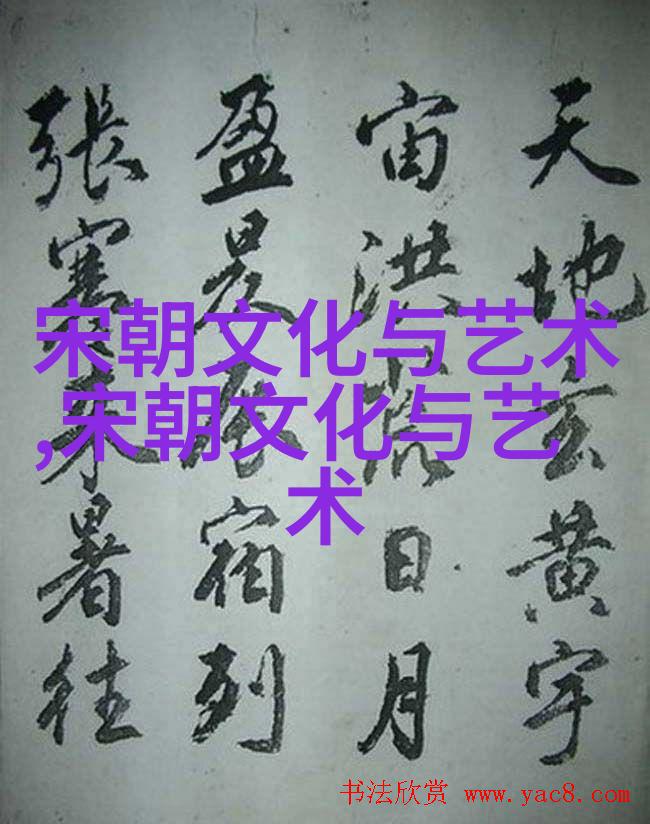 天地玄黄宇
宙洪荒日月
盈昃辰宿列
張寒来暑往
宋朝文化与艺术
,宋朝文化与艺
术
书法欣赏 www.yac8.com